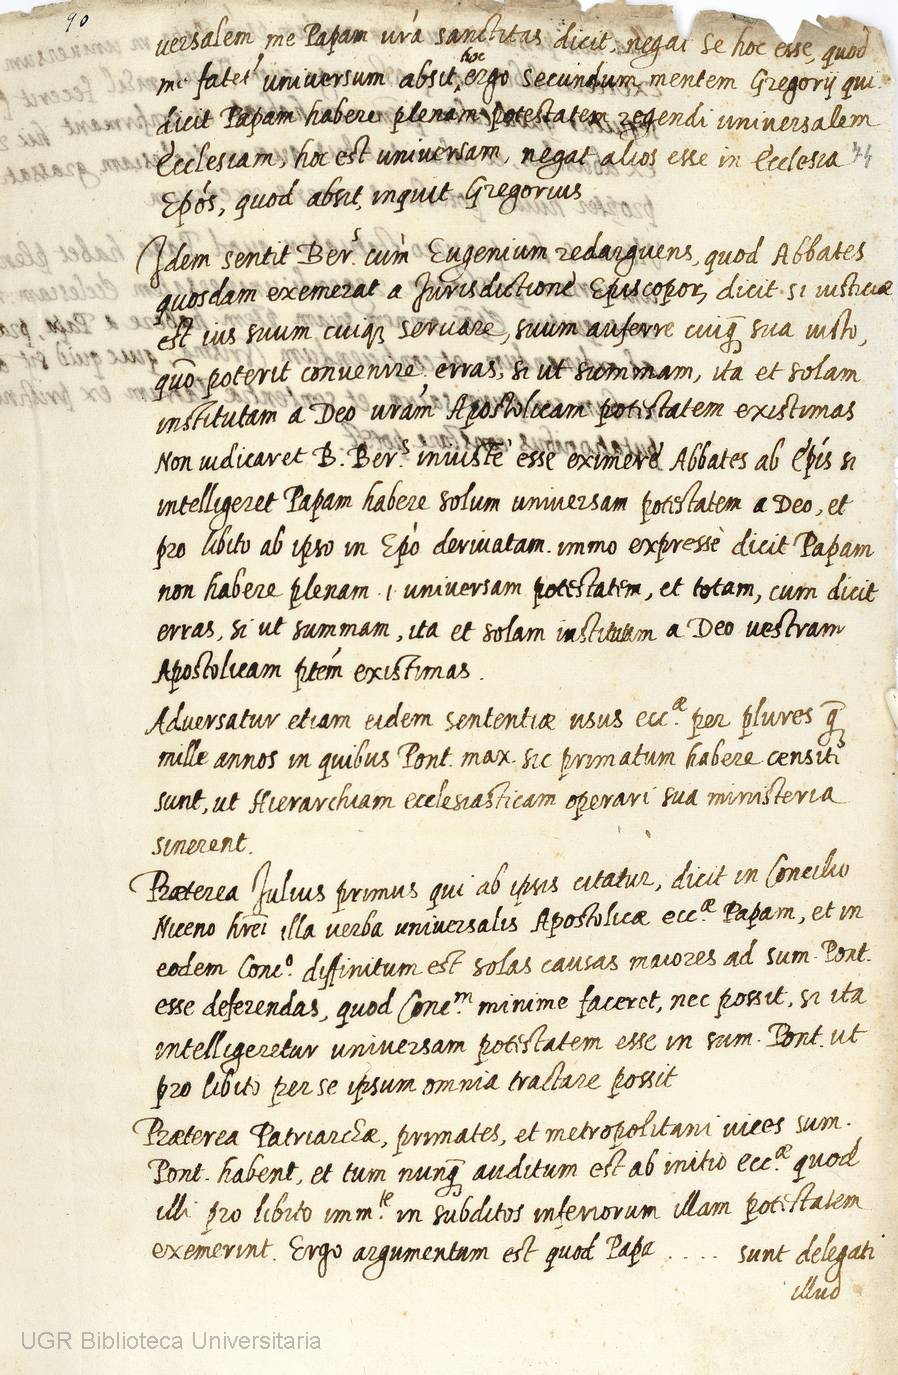 90
versalem me Papam vrā sanctitas dicit, negat se hoc esse, quod
me fatet' universum absit, hoc ergo secundum mentem Gregorij qui
dicit Papam habere plenam potestatem regendi universalem
Ecclesiam, hoc est universam, negat alios esse in Ecclesia
Epōs, quod absit, inquit Gregorius
Idem sentit Ber.s cum Eugenium redarguens, quod Abbates
quosdam exemerat a Jurisdictione Episcopor, dicit si iusticiæ
est ius suum cuiq; servare, suum auferre cuiq̃ sua iusto,
quō poterit convenire. erras, si ut summam, ita et solam
institutam a Deo vram Apostolicam potestatem existimas
Non iudicaret B. Ber.s iniuste esse eximere Abbates ab Epīs si
intelligeret Papam habere solum universam potestatem a Deo, et
pro libito ab ipso in Epō derivatam. immo expressè dicit Papam
non habere plenam .i. universam potestatem, et totam, cum dicit
erras, si ut summam, ita et solam institutam a Deo vestram
Apostolicam ptēm existimas.
Adversatur etiam eidem sententiæ usus ecc.æ per plures q̃
mille annos in quibus Pont. max. sic primatum habere censiti
sunt, ut Hierarchiam ecclesiasticam operari sua ministeria
sinerent.
Præterea Julius primus qui ab ipsis citatur, dicit in Concilio
Niceno hrēi illa verba universalis Apostolicæ ecc.æ Papam, et in
eodem Conc.o diffinitum est solas causas maiores ad sum. Pont.
esse deferendas, quod Conc.m minime faceret, nec possit, si ita
intelligeretur universam potestatem esse in sum. Pont. ut
pro libito per se ipsum omnia tractare possit
Præterea Patriarchæ, primates, et metropolitani vices sum.
Pont. habent, et tum nunq̃ auditum est ab initio ecc.æ quod
illi pro libito imm.te in subditos inferiorum illam potestatem
exemerint. Ergo argumentum est quod Papa .... sunt delegati
illud
UGR Biblioteca Universitaria